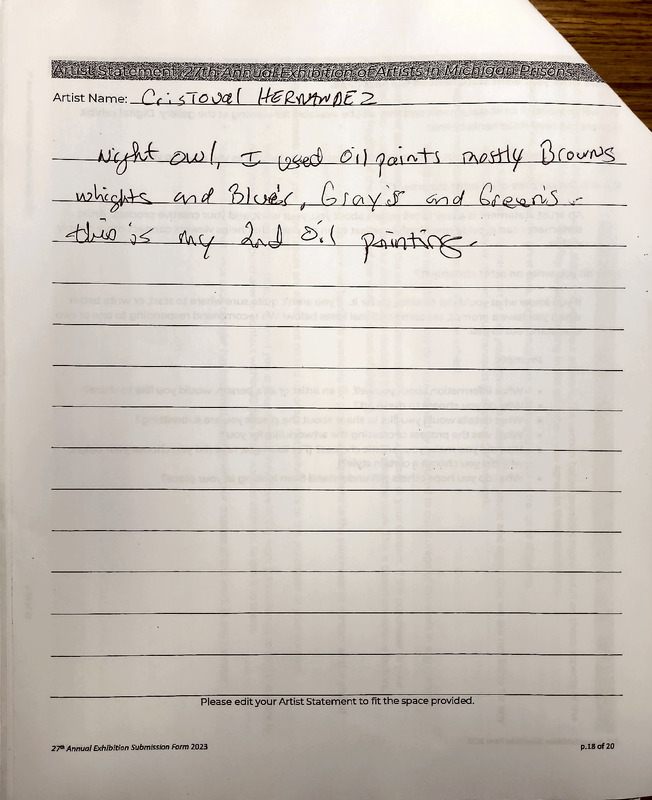 Artist Statement: 27th Annual Exhibition of Artists in Michigan Prisons
Artist Name: Cristoval HERNANDEZ
Night owl, I used Oil paints mostly Browns
whights and Blue's, Gray's and Green's -
this is my 2nd Oil painting.
Please edit your Artist Statement to fit the space provided.
27th Annual Exhibition Submission Form 2023
p.18 of 20